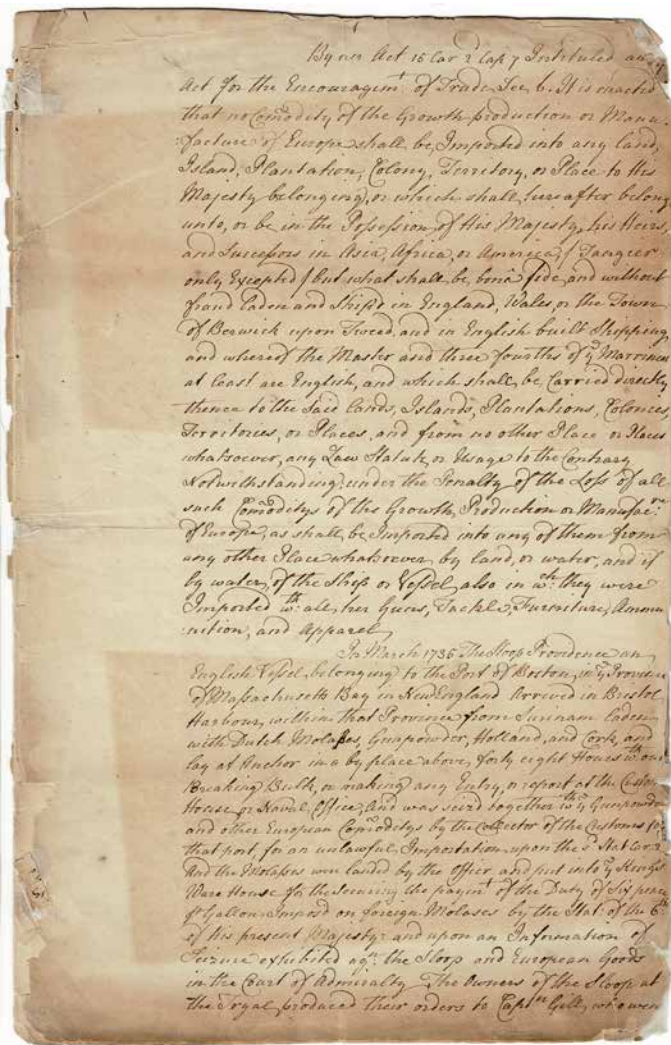 By an Act 15 Car 2 Cap 7 Intituled an
Act for the Encouragemt. of Trade Sec 6. It is enacted
that no Comõdity of the Growth production or Manu-
:facture of Europe shall be Imported into any land,
Island, Plantation, Colony, Territory, or Place to His
Majesty belonging, or which shall hereafter belong
unto, or be in the Possession of His Majesty, his Heirs,
and Successors in Asia, Africa, or America, / Tangier
only Excepted / but what shall be bonâ fide, and without
fraud laden and Ship'd in England, Wales, or the Town
of Berwick upon Tweed, and in English built Shipping,
and whereof the Master and three fourths of ye Marriners
at least are English, and which shall be Carried directly
thence to the said lands, Islands, Plantations, Colonies,
Territories, or Places, and from no other Place or Places
whatsoever, any Law Statute or Usage to the Contrary
Notwithstanding, under the Penalty of the Loss of all
such Comõditys of the Growth, Production or Manufac:re
of Europe, as shall be Imported into any of them from
any other Place whatsoever by land, or water, and if
by water, of the Ship or Vessel also in wch: they were
Imported wth: all her Guns, Tackle, Furniture, Ammu
:nition, and Apparel
In March 1735 The Sloop Providence an
English Vessel, belonging to the Port of Boston, in ye Province
of Massachusetts Bay in New England Arrived in Bristol
Harbour, within that Province from Surinam laden
with Dutch Molasses, Gunpowder, Holland, and Cork, and
lay at Anchor in a by place above forty eight Hours wth. out
Breaking Bulk, or making any Entry, or report at the Custom
House or Naval Office, And was seiz'd together wth. ye Gunpowder
and other European Comõditys by the Collector of the Customs for
that port, for an unlawful Importation upon the sd Stat Car. 2
And the Molasses were landed by the Officer and put into ye King's
Ware House for the securing the paymt. of the Duty of Six pence
pr Gallon Impos'd on foreign Molasses by the Stat: of the 6th
of His present Majesty: and upon an Information of
Seizure exhibited agst: the Sloop and European Goods
in the Court of Admiralty The Owners of the Sloop at
the Tryal, produced their orders to Captn Gill, who were